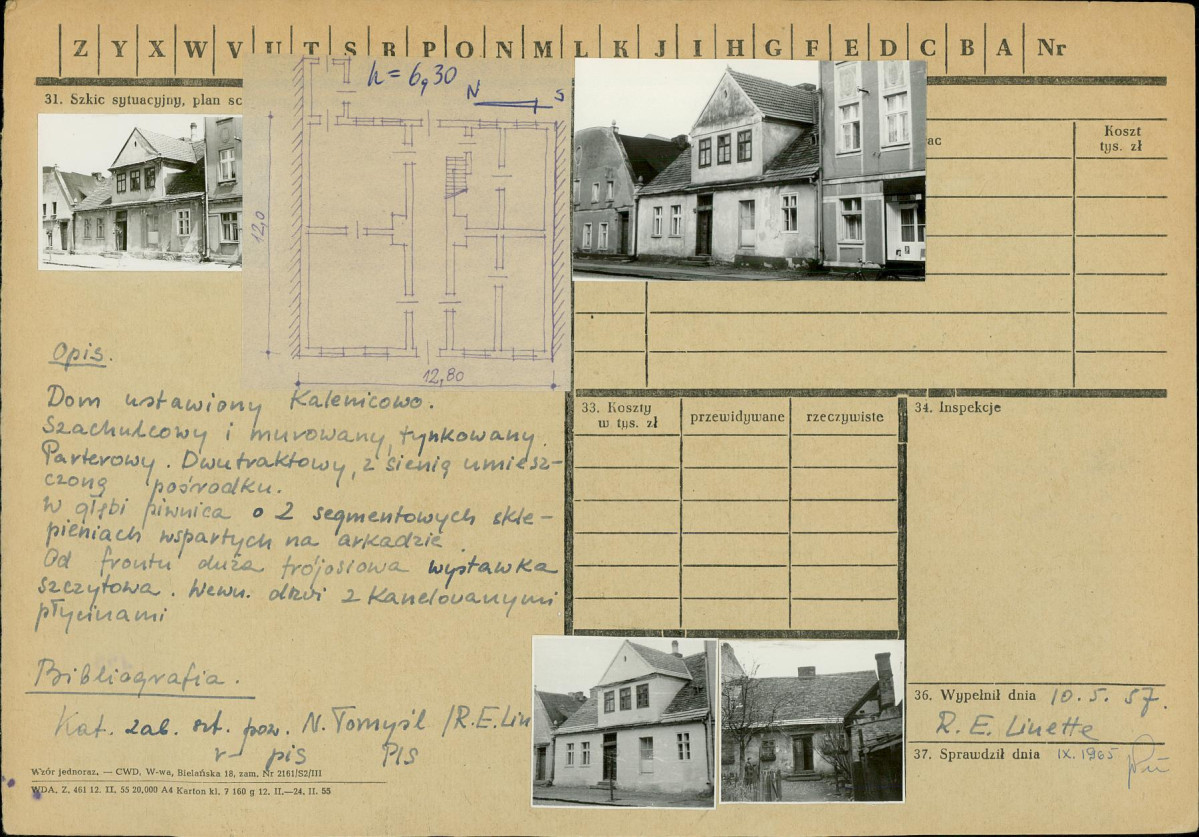 Z Y X W V U T S R P O N M L K J I H G F E D C B A Nr
31. Szkic sytuacyjny, plan sc
h = 6,30
N S
12,0
12,80
ac
Koszt
tys. zł
Opis.
Dom ustawiony Kalenicowo.
Szachulcowy i murowany, tynkowany.
Parterowy. Dwutraktowy, z sienią umiesz-
czoną pośrodku.
W głębi piwnica o 2 segmentowych skle-
pieniach wspartych na arkadzie.
Od frontu duża trójosiowa wystawka
szczytowa. Wewn. drzwi z Kanelowanymi
płycinami
Bibliografia.
Kat. zab. szt. pow. N. Tomyśl /R.E.Lin
r-pis PIS
Wzór jednoraz. — CWD, W-wa, Bielańska 18, zam. Nr 2161/S2/III
WDA. Z. 461 12. II. 55 20,000 A4 Karton kl. 7 160 g 12. II.—24. II. 55
33. Koszty
w tys. zł
przewidywane
rzeczywiste
34. Inspekcje
36. Wypełnił dnia 10. 5. 57.
R. E. Linette
37. Sprawdził dnia IX. 1965